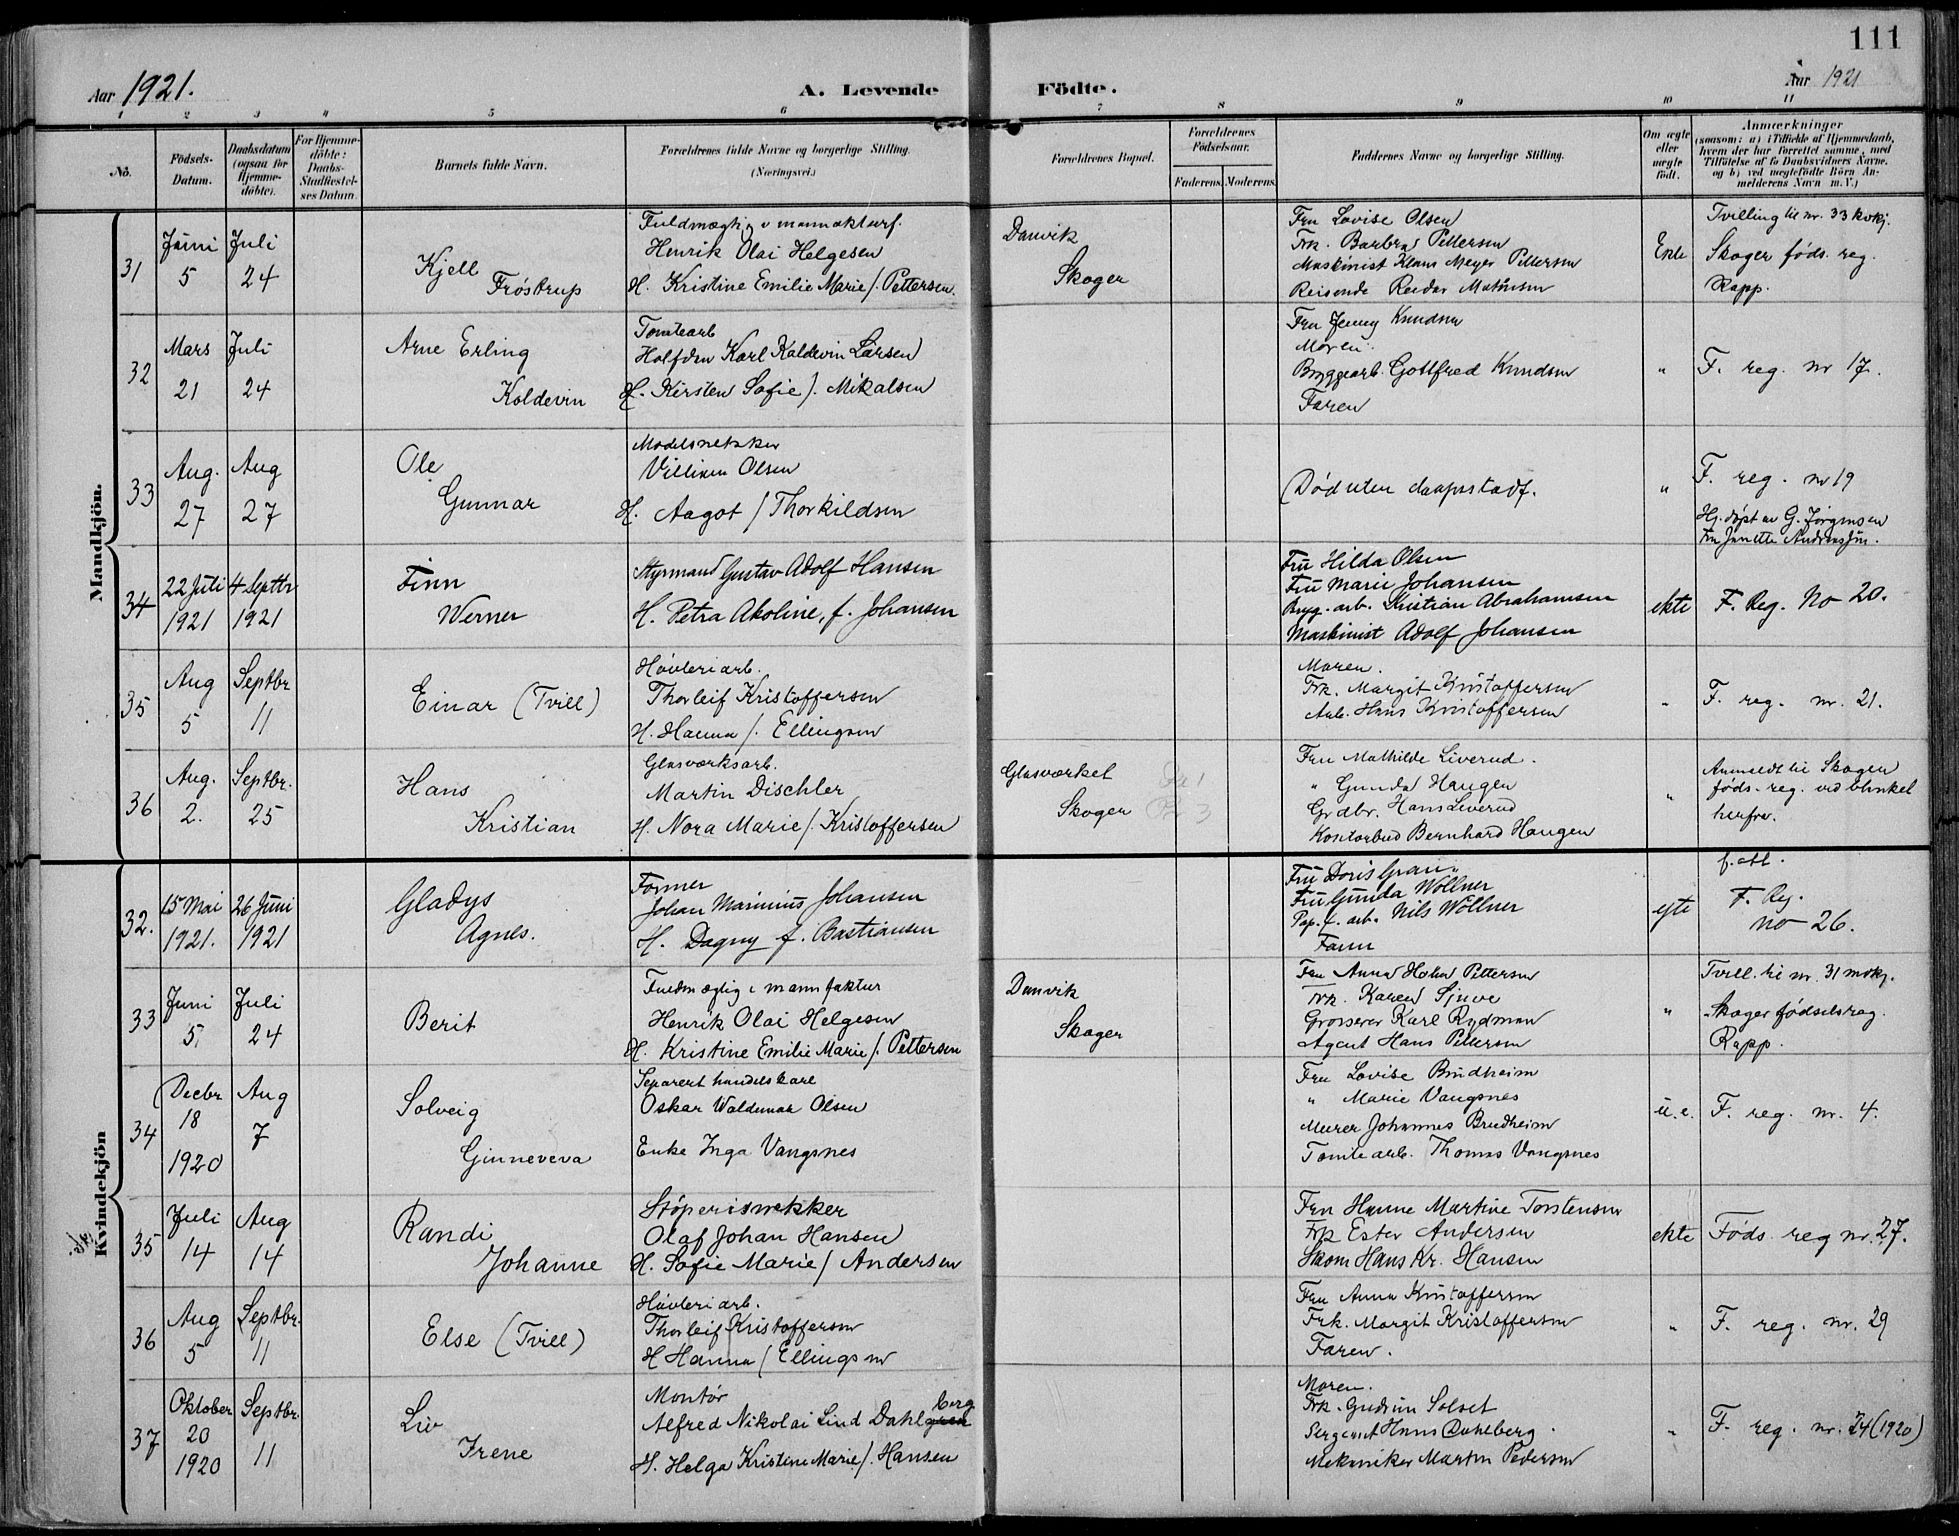 111
Aar 1921.
A. Levende Födte.
Aar 1921
1 2 3 4 5 6 7 8 9 10 11
No.
Födsels-
Datum.
Daabsdatum
(ogsaa for
Hjemme-
döbte).
For Hjemme-
döbte:
Daabs-
Stadfæstel-
ses Datum.
Barnets fulde Navn.
Forældrenes fulde Navne og borgerlige Stilling.
(Næringsvei.)
Forældrenes Bopæl.
Forældrenes
Födselsaar.
Faderens. Moderens.
Faddernes Navne og borgerlige Stilling.
Om ægte
eller
uægte
födt.
Anmærkninger
(saasom: a) i Tilfælde af Hjemmedaab,
hvem der har forrettet samme, med
Tilföielse af to Daabsvidners Navne.
og b) ved uægtefödte Börn An-
melderens Navn m. V.)
Mandkjön.
31
Juni
5
Juli
24
Kjell
Fröstrup
Fuldmægtig i
Henrik Olai Helgesen
H. Kristine Emilie Marie f. Pettersen.
Danvik
Skoger
Fru Lovise Olsen
Frk. Barbra Pettersen
Maskinist Klaus Meyer Pettersen
Reisende Reidar
Ekte
Tvilling til nr. 33 kvkj.
Skoger føds. reg.
Rapp.
32
Mars
21
Juli
24
Arne Erling
Koldevin
Tomtearb
Halfdan Karl Koldevin Larsen
H. Kirsten Sofie f. Mikalsen
Fru Jenny Knudsen
Moren.
Bryggearb. Gottfred Knudsen
Faren
"
F. reg. nr 17.
33
Aug.
27
Aug
27
Ole
Gunnar
Modelsnekker
Villiam Olsen
H. Aagot f Thorkildsen
Død uten daapsstadf.
"
F. reg. nr 19
Hj. døpt av G. Jørgensen
34
22 Juli
1921
4 Septbr
1921
Finn
Werner
Styrmand Gustav Adolf Hansen
H. Petra Akoline, f. Johansen
Fru Hilda Olsen
Fru Marie Johansen
Bryg. arb. Kristian Abrahamsen
Maskinist Adolf Johansen
ekte
F. Reg. No 20.
35
Aug
5
Septbr
11
Einar (Tvill)
Høvleriarb.
Thorleif Kristoffersen
H. Hanna f. Ellingsen
Moren.
Frk. Margit Kristoffersen
Arb. Hans Kristoffersen
"
F. reg. nr. 21.
36
Aug.
2.
Septbr.
25
Hans
Kristian
Glasværksarb.
Martin Dischler
H. Nora Marie f. Kristoffersen
Glasværket
Skoger
Fru Mathilde Liverud.
" Gunda Haugen
Grdbr. Hans Liverud
Kontorbud Bernhard Haugen
"
Anmeldt til Skoger
føds. reg. ved blanket
herfra.
Kvindekjön
32.
15 Mai
1921.
26 Juni
1921
Gladys
Agnes.
Former
Johan Marinius Johansen
H. Dagny f. Bastiansen
Fru Doris Gran
Fru Gunda Wøllner
Pap. f. arb. Nils Wøllner
Faren
egte
f. att.
F. Reg.
No 26.
33
Juni
5.
Juli
24
Berit
Fuldmægtig i manufaktur
Henrik Olai Helgesen
H. Kristine Emilie Marie f. Pettersen
Danvik
Skoger
Fru Anna Holm Pettersen
Frk. Karen
Grosserer Karl Rydman
Agent Hans Pettersen
"
Tvill. til nr. 31 mkj.
Skoger fødselsreg.
Rapp.
34
Decbr
18
1920
Aug
7
Solveig
Ginneveva
Separert handelskarl
Oskar Waldemar Olsen
Enke Inga Vangsnes
Fru Lovise Brudheim
" Marie Vangsnes
Murer Johannes Brudheim
Tomtearb. Thomas Vangsnes
u.e.
F. reg. nr. 4.
35
Juli
14
Aug
14
Randi
Johanne
Støperisnekker
Olaf Johan Hansen
H. Sofie Marie f Andersen
Fru Hanne Martine Torstensen
Frk Ester Andersen
Skom Hans Kr. Hansen
ekte
Føds. reg nr. 27.
36
Aug
5
Septbr.
11
Else (Tvill)
Høvleriarb.
Thorleif Kristoffersen
H Hanna f Ellingsen
Fru Anna Kristoffersen
Frk. Margit Kristoffersen
Faren.
"
F. reg. nr. 29
37
Oktober
20
1920
Septbr.
11
Liv
Irene
Montør
berg
Alfred Nikolai Lind Dahlgren
H. Helga Kristine Marie f. Hansen
Moren.
Frk. Gudrun Solset
Sergeant Hans Dahlberg.
Mekaniker Martin Pedersen
"
F. reg. nr. 34 (1920)